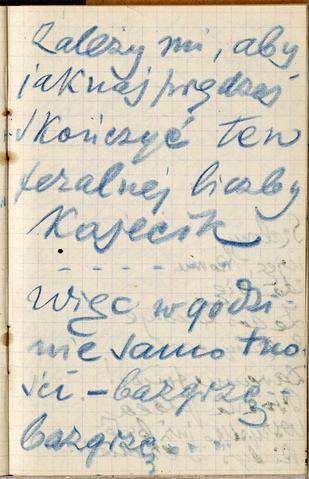 Zależy mi, aby
jaknajprędzej
skończyć ten
feralnej liczby
Kajecik
- - - - - -
Więc w godzi-
nie samotno-
ści - bazgrzę,
bazgrzę . . .